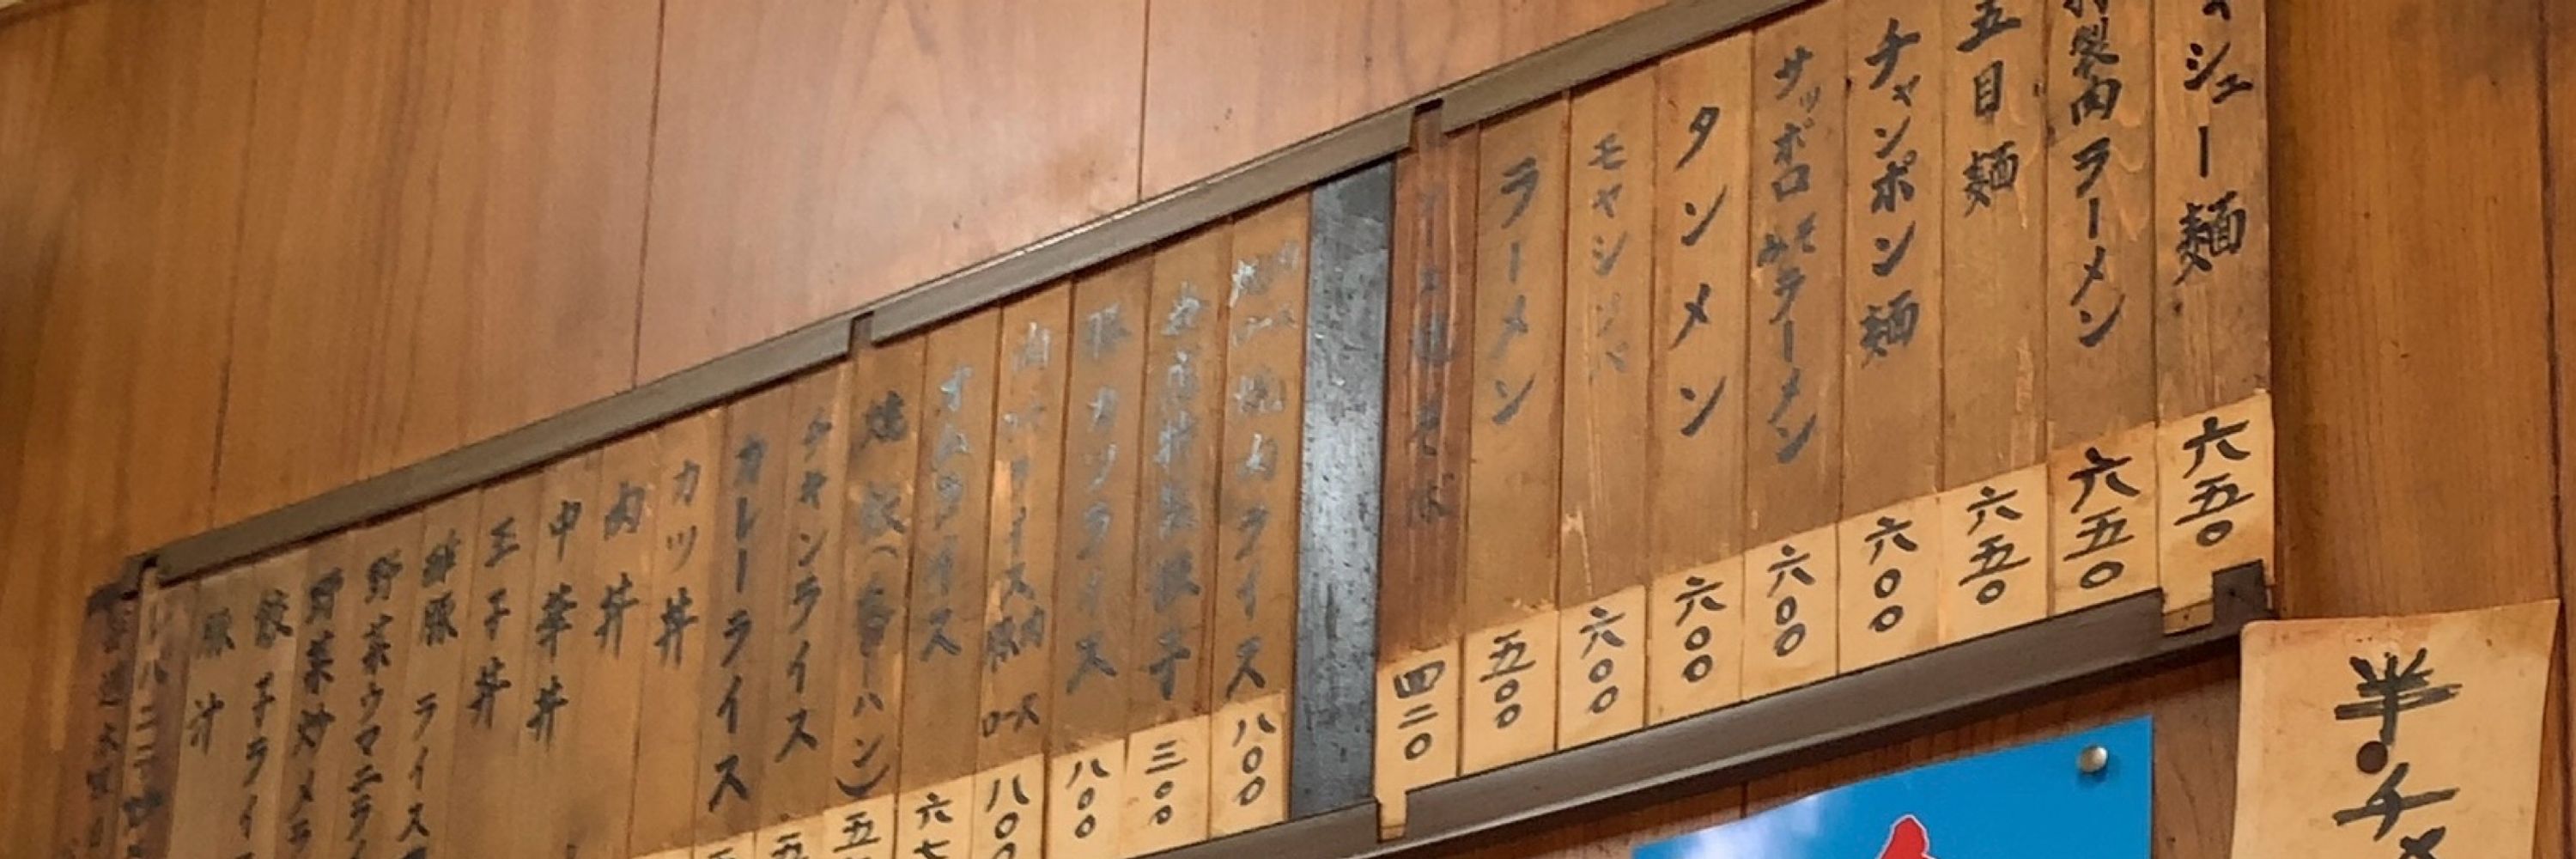 シュー麺
六五〇
特製肉ラーメン
六五〇
五目麺
六五〇
チャンポン麺
六〇〇
サッポロみそラーメン
六〇〇
タンメン
六〇〇
モヤシソバ
六〇〇
ラーメン
五〇〇
そば
四二〇
焼肉ライス
八〇〇
当店特製餃子
三〇〇
豚カツライス
八〇〇
ライス
八〇〇
オムライス
六七
焼飯(チャーハン)
五
チキンライス
五
カレーライス
カツ丼
肉丼
中華丼
玉子丼
酢豚ライス
野菜ウマニライ
野菜炒メラ
餃子ライ
豚汁
半・チャ